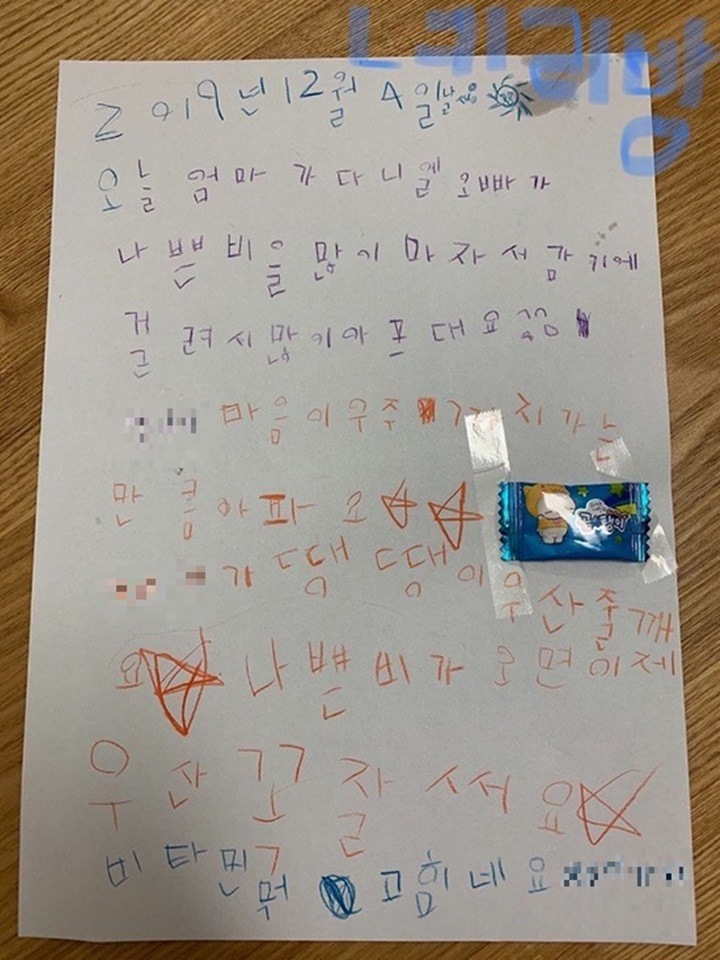 2019년12월 4일
오늘 엄마가 다니엘 오빠가
나쁜비을 많이 마자서 감기에
걸려시많이아프대요
마음이우주 까지가는
만큼아파요
가 땡땡이우산줄깨
요 나쁜비가 오면이제
우산꼭 잘 써요
비타민 먹 고힘네요